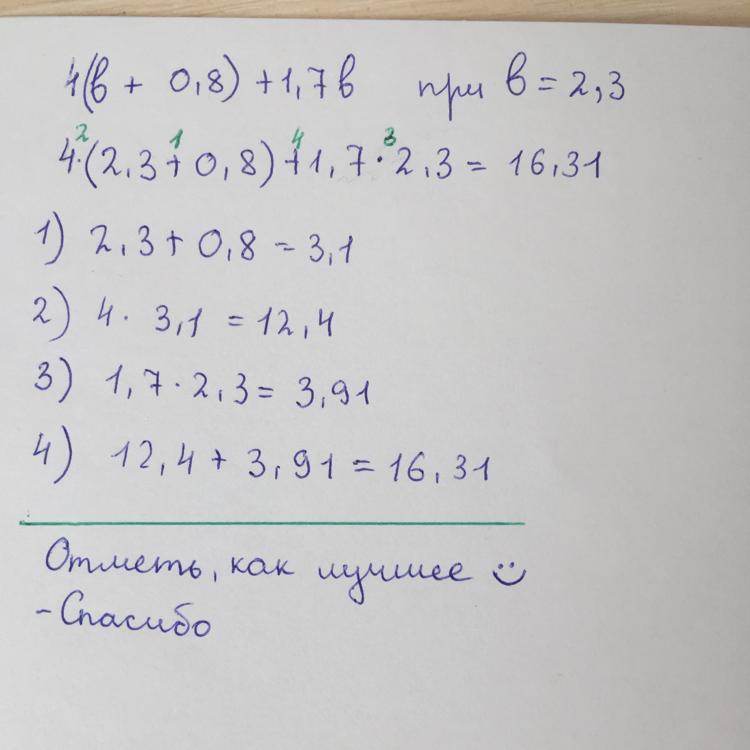 4(в + 0,8) + 1,7в при в = 2,3
2 1 4 3
4·(2,3 + 0,8) + 1,7 · 2,3 = 16,31
1) 2,3 + 0,8 = 3,1
2) 4 · 3,1 = 12,4
3) 1,7 · 2,3 = 3,91
4) 12,4 + 3,91 = 16,31
Отметь, как лучшее
- Спасибо